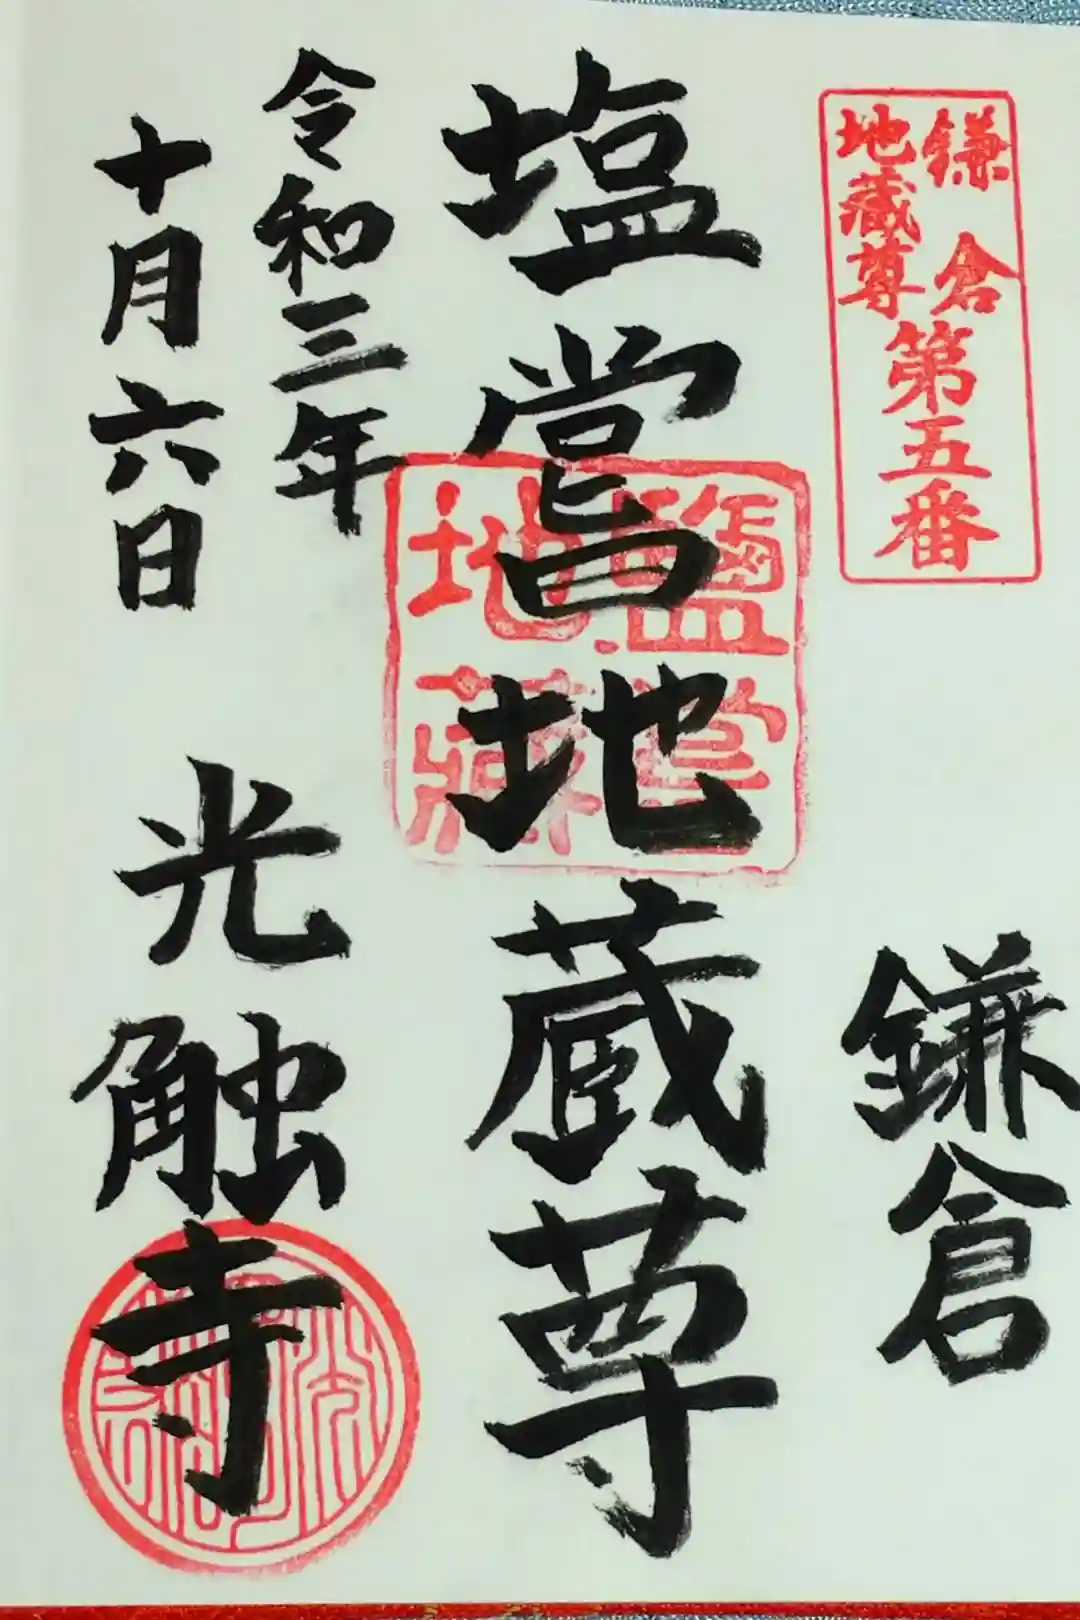 鎌倉
地蔵尊
第五番
鎌倉
塩嘗地蔵尊
鹽嘗
地藏
令和三年
十月六日
光触寺